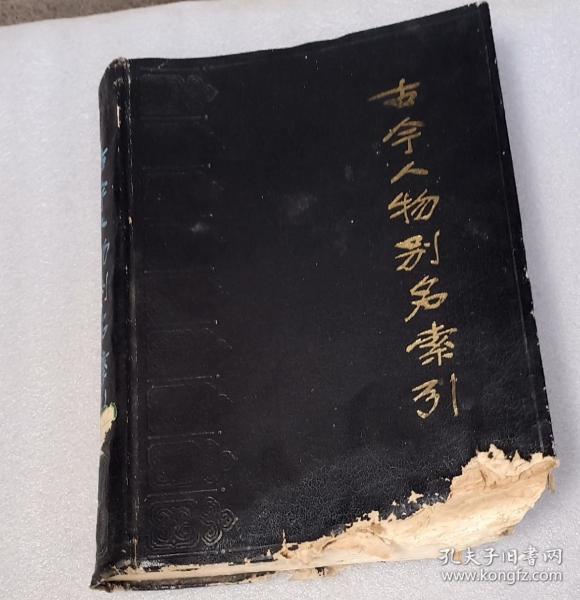 古今人物别名索引
古今人物别名索引
孔夫子旧书网
www.kongfz.com